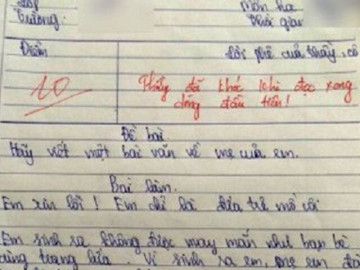 Lớp
Môn
Trường
Thời gian
Điểm
Lời phê của thầy, cô
10
Thầy đã khóc khi đọc xong
dòng đầu tiên!
Đề bài
Hãy viết một bài văn về mẹ của em.
Bài làm.
Em xin lỗi! Em chỉ là đứa trẻ mồ côi
Em sinh ra không được may mắn như bạn bè
cùng trang lứa. Vì sinh ra em, mẹ em đã